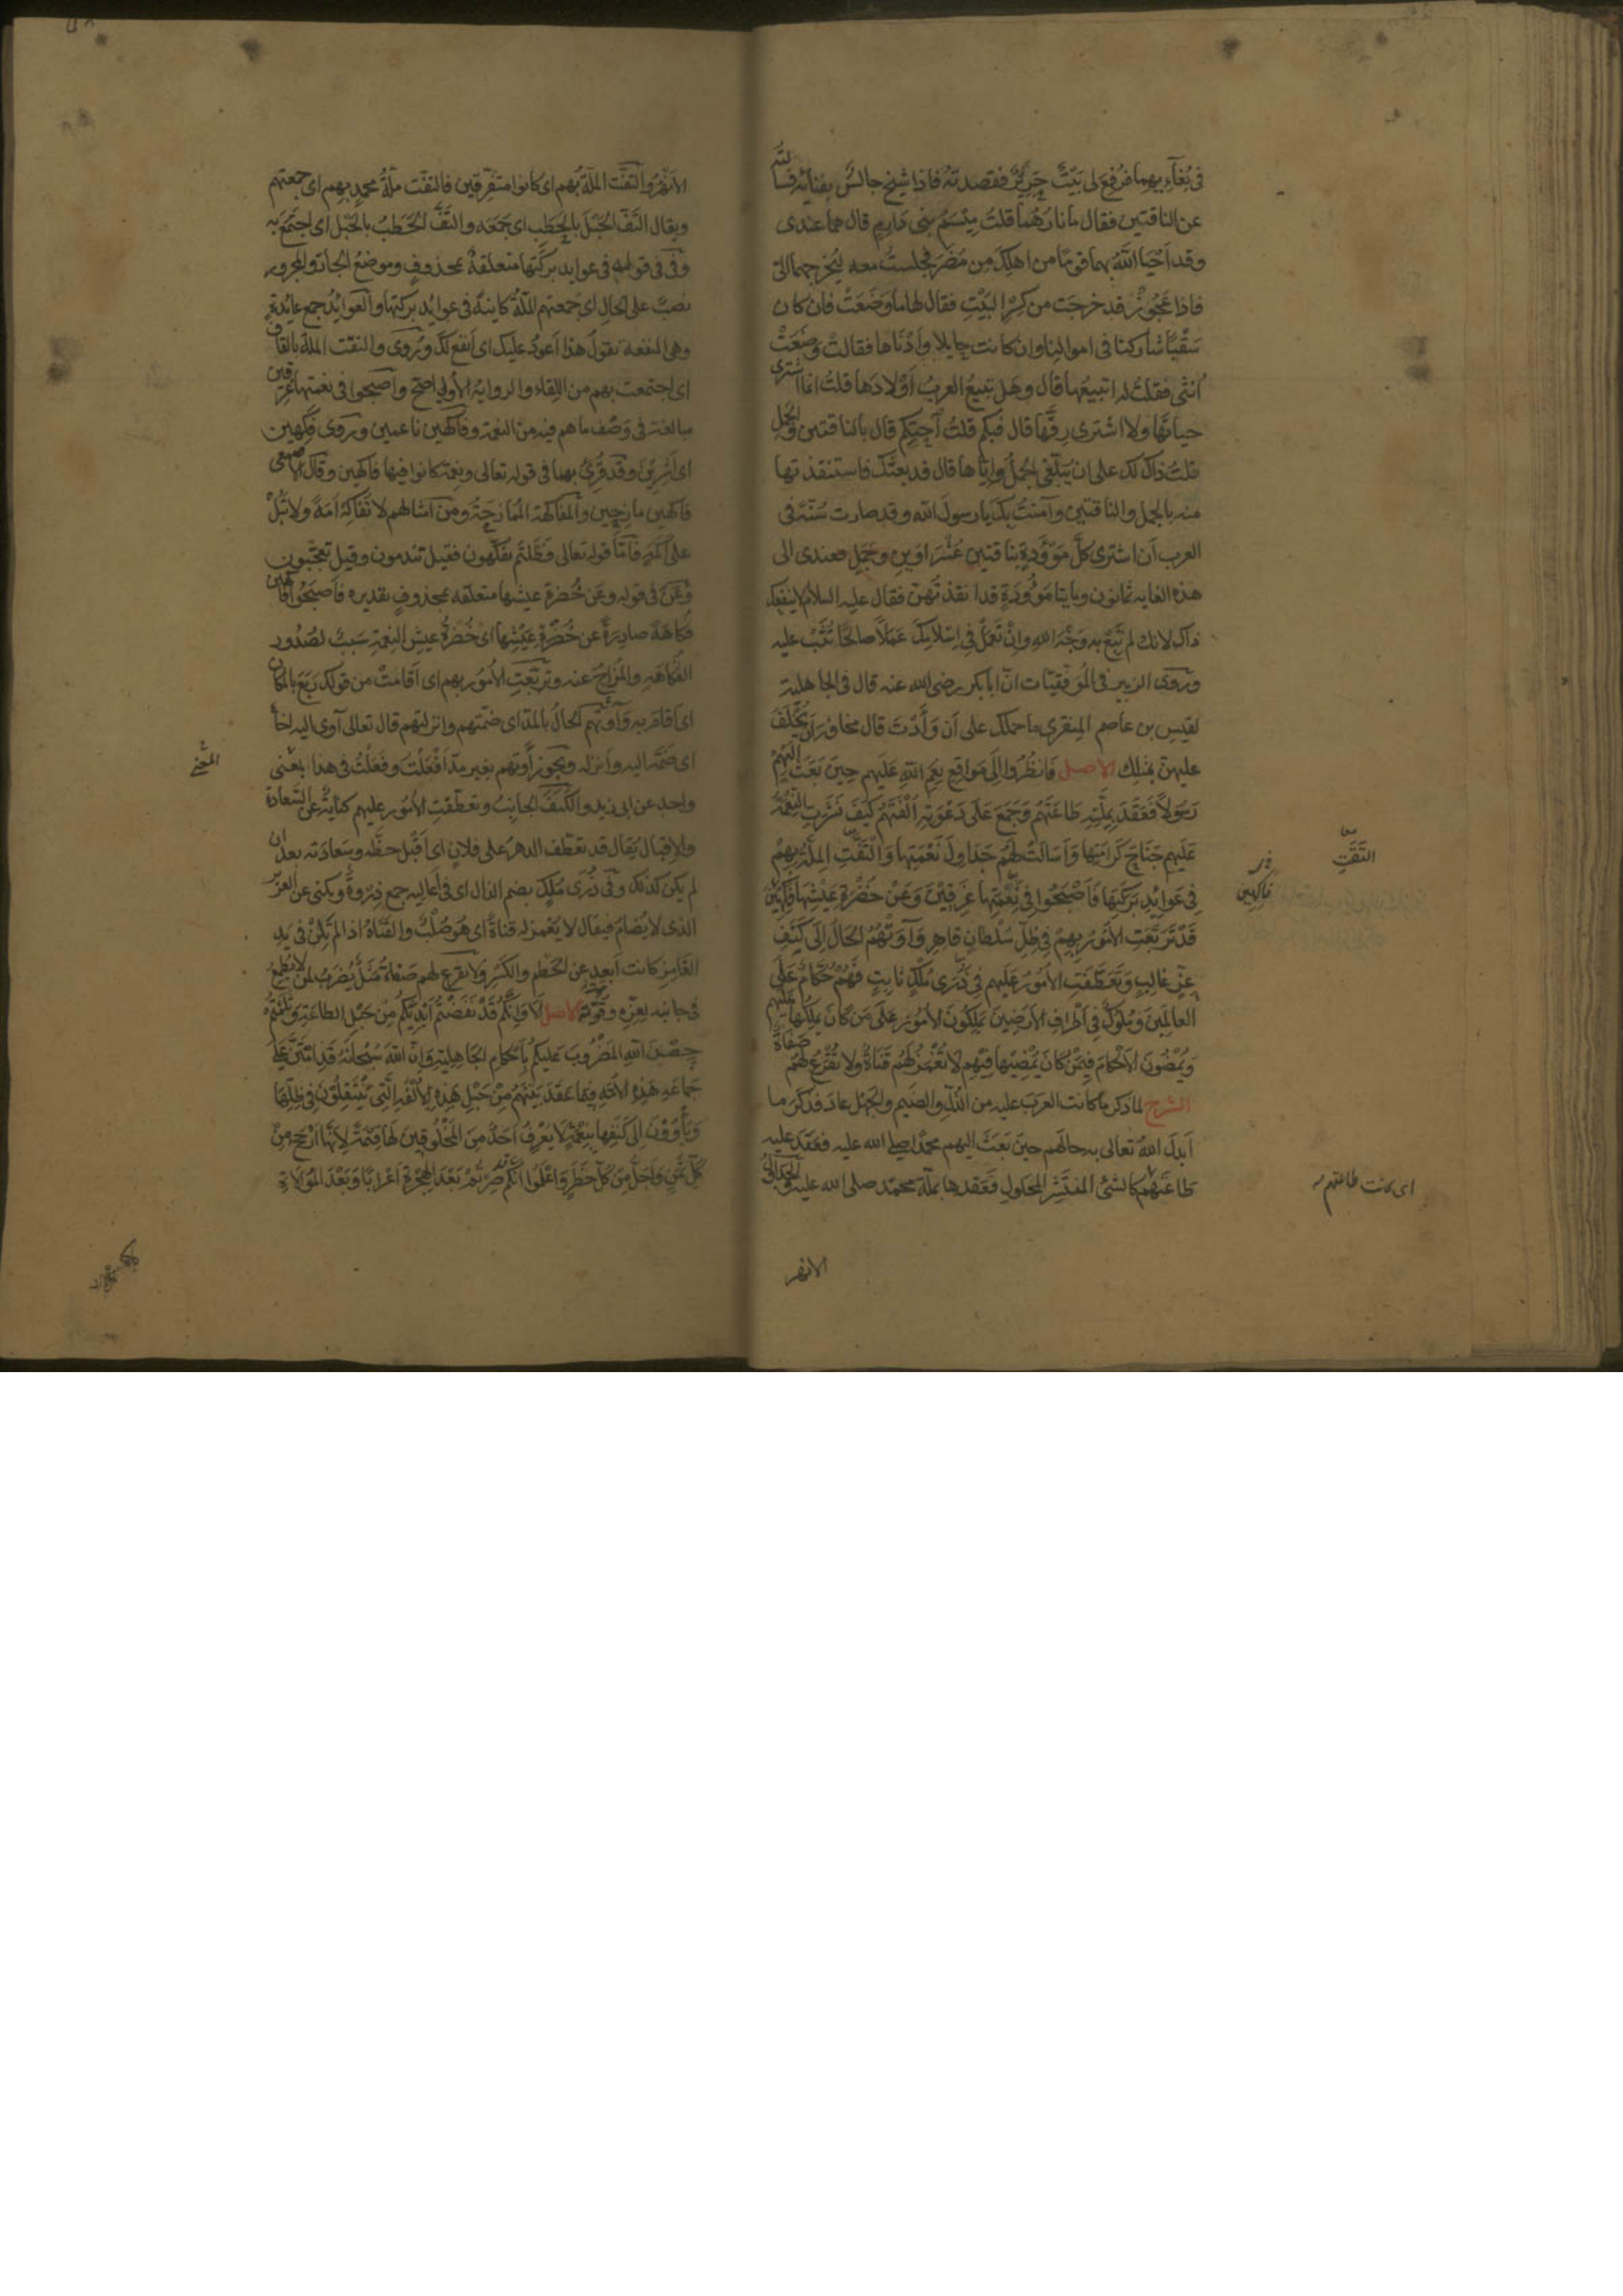 في بغآيهما فرفع لي بيت جريد فقصدته فاذا شيخ جالس بفنائه فسألته
عن الناقتين فقال ما نارهما قلت ميسم بني دارم قال هما عندي
وقد احيا الله بهما قوما من اهلك من مضر فجلست معه ليخرجهما الي
فاذا عجوز قد خرجت من كسر البيت فقال لها ما وضعت فان كان
سقبا شاركنا في اموالنا وان كانت حايلا وأدناها فقالت وضعت
انثى فقلت له اتبيعها قال وهل تبيع العرب اولادها قلت انما اشتري
حياتها ولا اشتري رقها قال فبكم قلت احتكم قال بالناقتين والجمل
قلت ذاك لك على ان يبلغني الجمل واياها قال قد بعتك فاستنقذتها
منه بالجمل والناقتين وآمنت بك يا رسول الله وقد صارت سنة في
العرب ان اشتري كل موؤدة بناقتين عشراوين وجمل فعندي الى
هذه الغايه ثمانون ومايتا موؤودة قد انقذتهن فقال عليه السلام لا ينفعك
ذاك لانك لم تبتغ به وجه الله وان تعمل في اسلامك عملا صالحا تثب عليه
وروى الزبير في الموفقيات ان ابا بكر رضي الله عنه قال في الجاهلية
لقيس بن عاصم المنقري ما حملك على ان وأدت قال مخافة ان يخلف
عليهن مثلك الاصل فانظروا الى مواقع نعم الله عليهم حين بعث اليهم
رسولا فعقد بملته طاعتهم وجمع على دعوته الفتهم كيف نشرت النعمة
عليهم جناح كرامتها واسالت لهم جداول نعيمها والتفت الملة بهم
في عوائد بركتها فاصبحوا في نعمتها غرقين وعن خضرة عيشها فكهين
قد تربعت الامور بهم في ظل سلطان قاهر وآوتهم الحال الى كنف
عز غالب وتعطفت الامور عليهم في ذرى ملك ثابت فهم حكام على
العالمين وملوك في اطراف الارضين يملكون الامور على من كان يملكها عليهم
ويمضون الاحكام فيمن كان يمضيها فيهم لا تغمز لهم قناة ولا تقرع لهم صفاة
الشرح لما ذكر ما كانت العرب عليه من الذل والضيم والجهل عاد فذكر ما
ابدل الله تعالى به حالهم حين بعث اليهم محمدا صلى الله عليه فعقد عليه
طاعتهم كالشئ المنتشر المحلول فعقدها بملة محمد صلى الله عليه والجداول
التقت
فاكهين
اى كانت طاعتهم
الانهر
الانهر والتفت الملة بهم اى كانوا متفرقين فالتفت ملة محمد بهم اى جمعتهم
ويقال التف الحبل بالحطب اى جمعه والتف الحطب بالحبل اى اجتمع به
وفي في قوله في عوايد بركتها متعلقة بمحذوف وموضع الجار والمجرور
نصب على الحال اى جمعتهم الملة كاينة في عوايد بركتها والعوايد جمع عايدة
وهي المنفعة تقول هذا اعود عليك اى انفع لك وروى والتقت الملة بالقاف
اى اجتمعت بهم من اللقاء والرواية الاولى اصح واصبحوا في نعمتها غرقين
مبالغة في وصف ما هم فيه من النعمة وفاكهين ناعمين وروى فكهين
اى اشرين وقد قرئ بهما في قوله تعالى ونعمة كانوا فيها فاكهين وقال الاصمعي
فاكهين مازحين والمفاكهة الممازحة ومن امثالهم لا تفاكه امة ولا تبل
على اكمة فاما قوله تعالى فظلتم تفكهون فقيل تندمون وقيل تعجبون
وعن في قوله وعن خضرة عيشها متعلقة بمحذوف تقديره فاصبحوا فاكهين
فكاهة صادرة عن خضرة عيشها اى خضرة عيش النعمة سبب لصدور
الفكاهة والمزاح عنه وتربعت الامور بهم اى اقامت من قولك ربع بالمكان
اى اقام به وآوتهم الحال بالمد اى ضمتهم وانزلتهم قال تعالى آوى اليه اخاه
اى ضمه اليه وانزله ويجوز أوتهم بغير مد افعلت وفعلت في هذا بمعنى
واحد عن ابي زيد والكنف الجانب وتعطفت الامور عليهم كناية عن السعادة
والاقبال يقال قد تعطف الدهر على فلان اى اقبل حظه وسعادته بعد ان
لم يكن كذلك وفي ذرى ملك بضم الذال اى في اعاليه جمع ذروة ويكنى عن العزيز
الذي لا يضام فيقال لا يغمز له قناة اى هو صلب والقناة اذا لم تلن في يد
الغامز كانت ابعد عن الحطم والكسر ولا تقرع لهم صفاة مثل يضرب لمن لا يطمع
في جانبه لعزه وقوته الاصل الا وانكم قد نفضتم ايديكم من حبل الطاعة وثلمتم
حصن الله المضروب عليكم باحكام الجاهلية وان الله سبحانه قد امتن على
جماعة هذه الامة فيما عقد بينهم من حبل هذه الالفة التي ينتقلون في ظلها
ويأوون الى كنفها بنعمة لا يعرف احد من المخلوقين لها قيمة لانها ارجح من
كل ثمن واجل من كل خطر واعلموا انكم صرتم بعد الهجرة اعرابا وبعد الموالاة